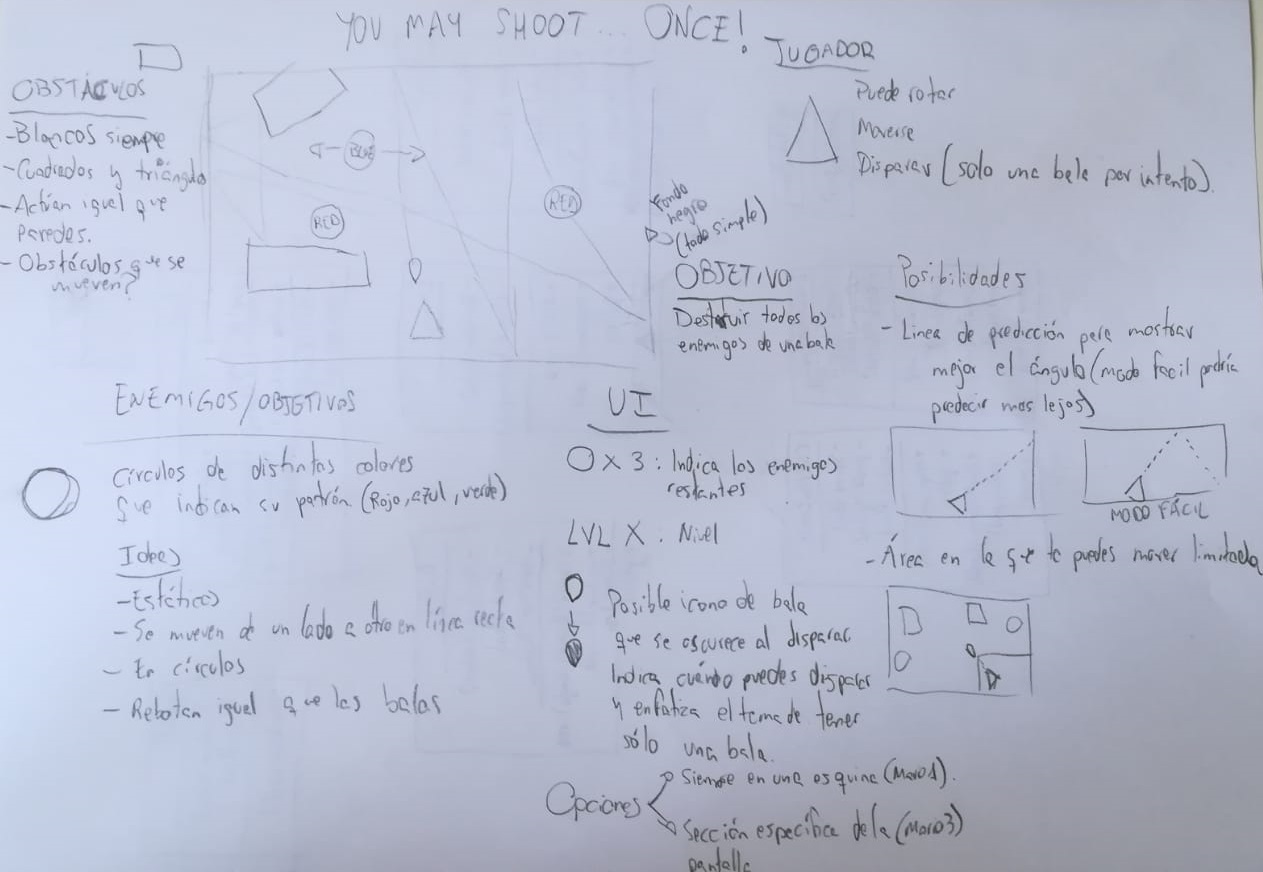 YOU MAY SHOOT... ONCE!
OBSTÁCULOS
-Blancos siempre
-Cuadrados y triángulos
-Actúan igual que
paredes.
- Obstáculos que se
mueven?
BLUE
RED
RED
Fondo
negro
(todo simple)
JUGADOR
Puede rotar
Moverse
Disparar (solo una bala por intento).
OBJETIVO
Destruir todos los
enemigos de una bala
Posibilidades
- Linea de predicción para mostrar
mejor el ángulo (modo facil podría
predecir mas lejos)
MODO FÁCIL
- Área en la que te puedes mover limitada
ENEMIGOS/OBJETIVOS
Círculos de distintos colores
que indican su patrón (Rojo, azul, verde)
Ideas
-Estáticos
- Se mueven de un lado a otro en línea recta
- En círculos
- Rebotan igual que las balas
UI
O x 3 : Indica los enemigos
restantes
LVL X : Nivel
Posible icono de bala
que se oscurece al disparar
Indica cuándo puedes disparar
y enfatiza el tema de tener
sólo una bala.
Opciones
Siempre en una esquina (Mov01).
Sección específica de la (Mov03)
pantalla